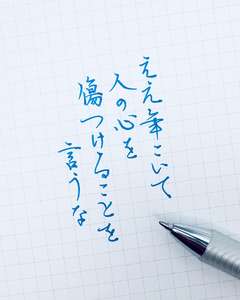 ええ年こいて
人の心を
傷つけることを
言うな